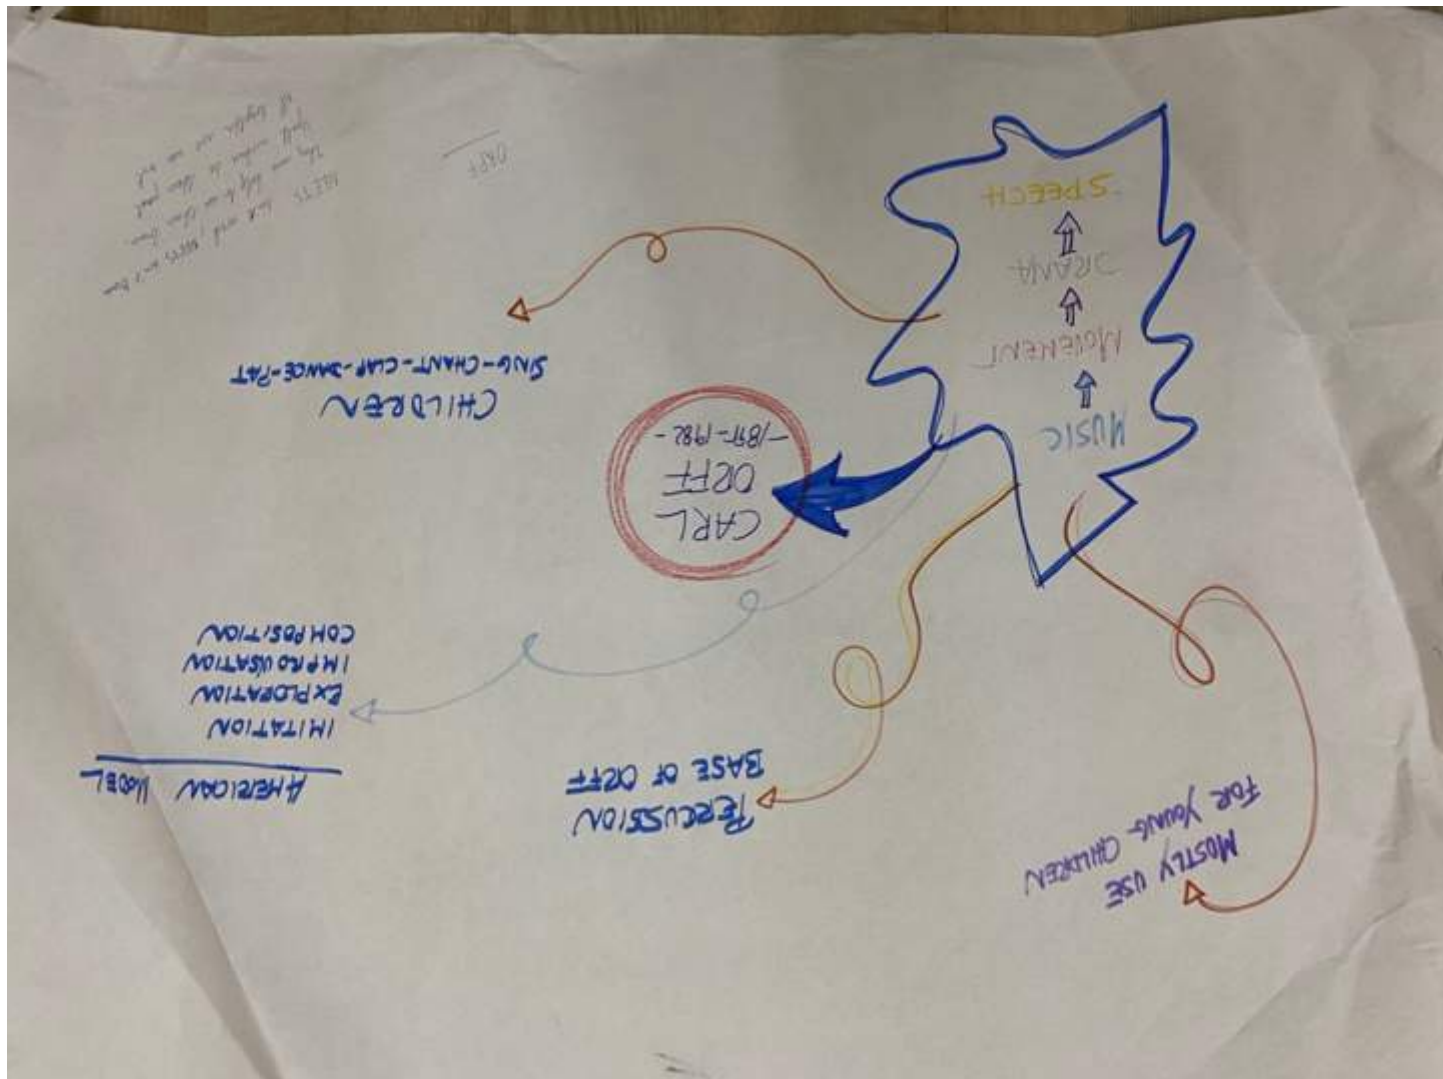 MOSTLY USE
FOR YOUNG CHILDREN
PERCUSSION
BASE OF ORFF
AMERICAN MODEL
IMITATION
EXPLORATION
IMPROVISATION
COMPOSITION
MUSIC
MOVEMENT
DRAMA
SPEECH
CARL
ORFF
-1895-1982-
CHILDREN
SING-CHANT-CLAP-DANCE-PAT
ORFF